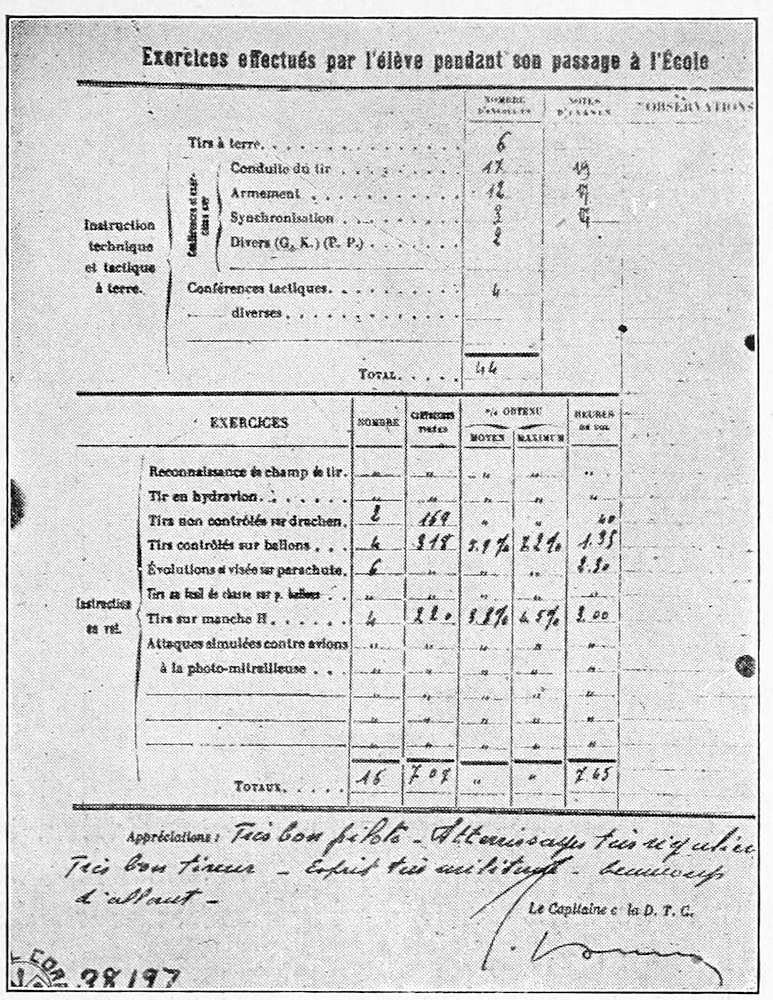 Exercices effectués par l'élève pendant son passage à l'École
NOMBRE D'ÉCOUTES NOTES D'EXAMEN OBSERVATIONS
Instruction technique et tactique à terre.
Tirs à terre. 6
Conférences et exercices sur
Conduite du tir 17 19
Armement 12 17
Synchronisation 3 17
Divers (G. K.) (P. P.) 2
Conférences tactiques. 4
— diverses.
TOTAL. 44
EXERCICES NOMBRE CARTOUCHES TIRÉES % OBTENU HEURES DE VOL
MOYEN MAXIMUM
Instruction en vol.
Reconnaissance de champ de tir. " " " " "
Tir en hydravion. " " " " "
Tirs non contrôlés sur drachen. 2 169 " " 40
Tirs contrôlés sur ballons 4 318 5.9% 7.2% 1.35
Évolutions et visée sur parachute. 6 " " " 2.30
Tirs au fusil de chasse sur p. ballons " " " " "
Tirs sur manche H. 4 220 3.8% 4.5% 3.00
Attaques simulées contre avions " " " " "
à la photo-mitrailleuse " " " " "
" " " " "
" " " " "
" " " " "
TOTAUX. 16 707 " " 7.45
Appréciations : Très bon pilote - Atterrissages très régulier
Très bon tireur - Esprit très militaire - beaucoup
d'allant -
Le Capitaine c la D. T. C.
98197